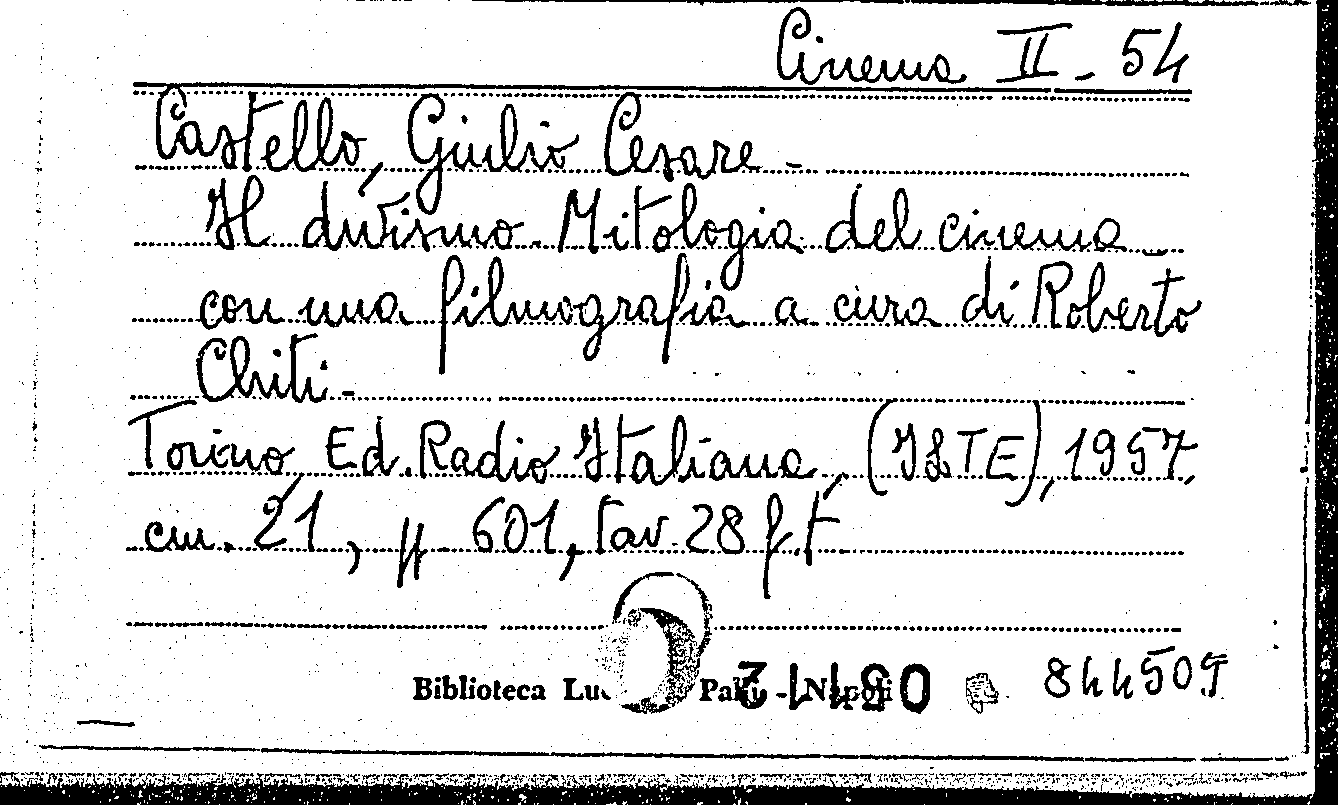 Cinema II - 54
Castello, Giulio Cesare -
Il divismo. Mitologia del cinema
con una filmografia a cura di Roberto
Chiti -
Torino, Ed. Radio Italiana, (ILTE), 1957,
cm. 21, pp. 601, tav. 28 f.t.
Biblioteca - Napoli 844505